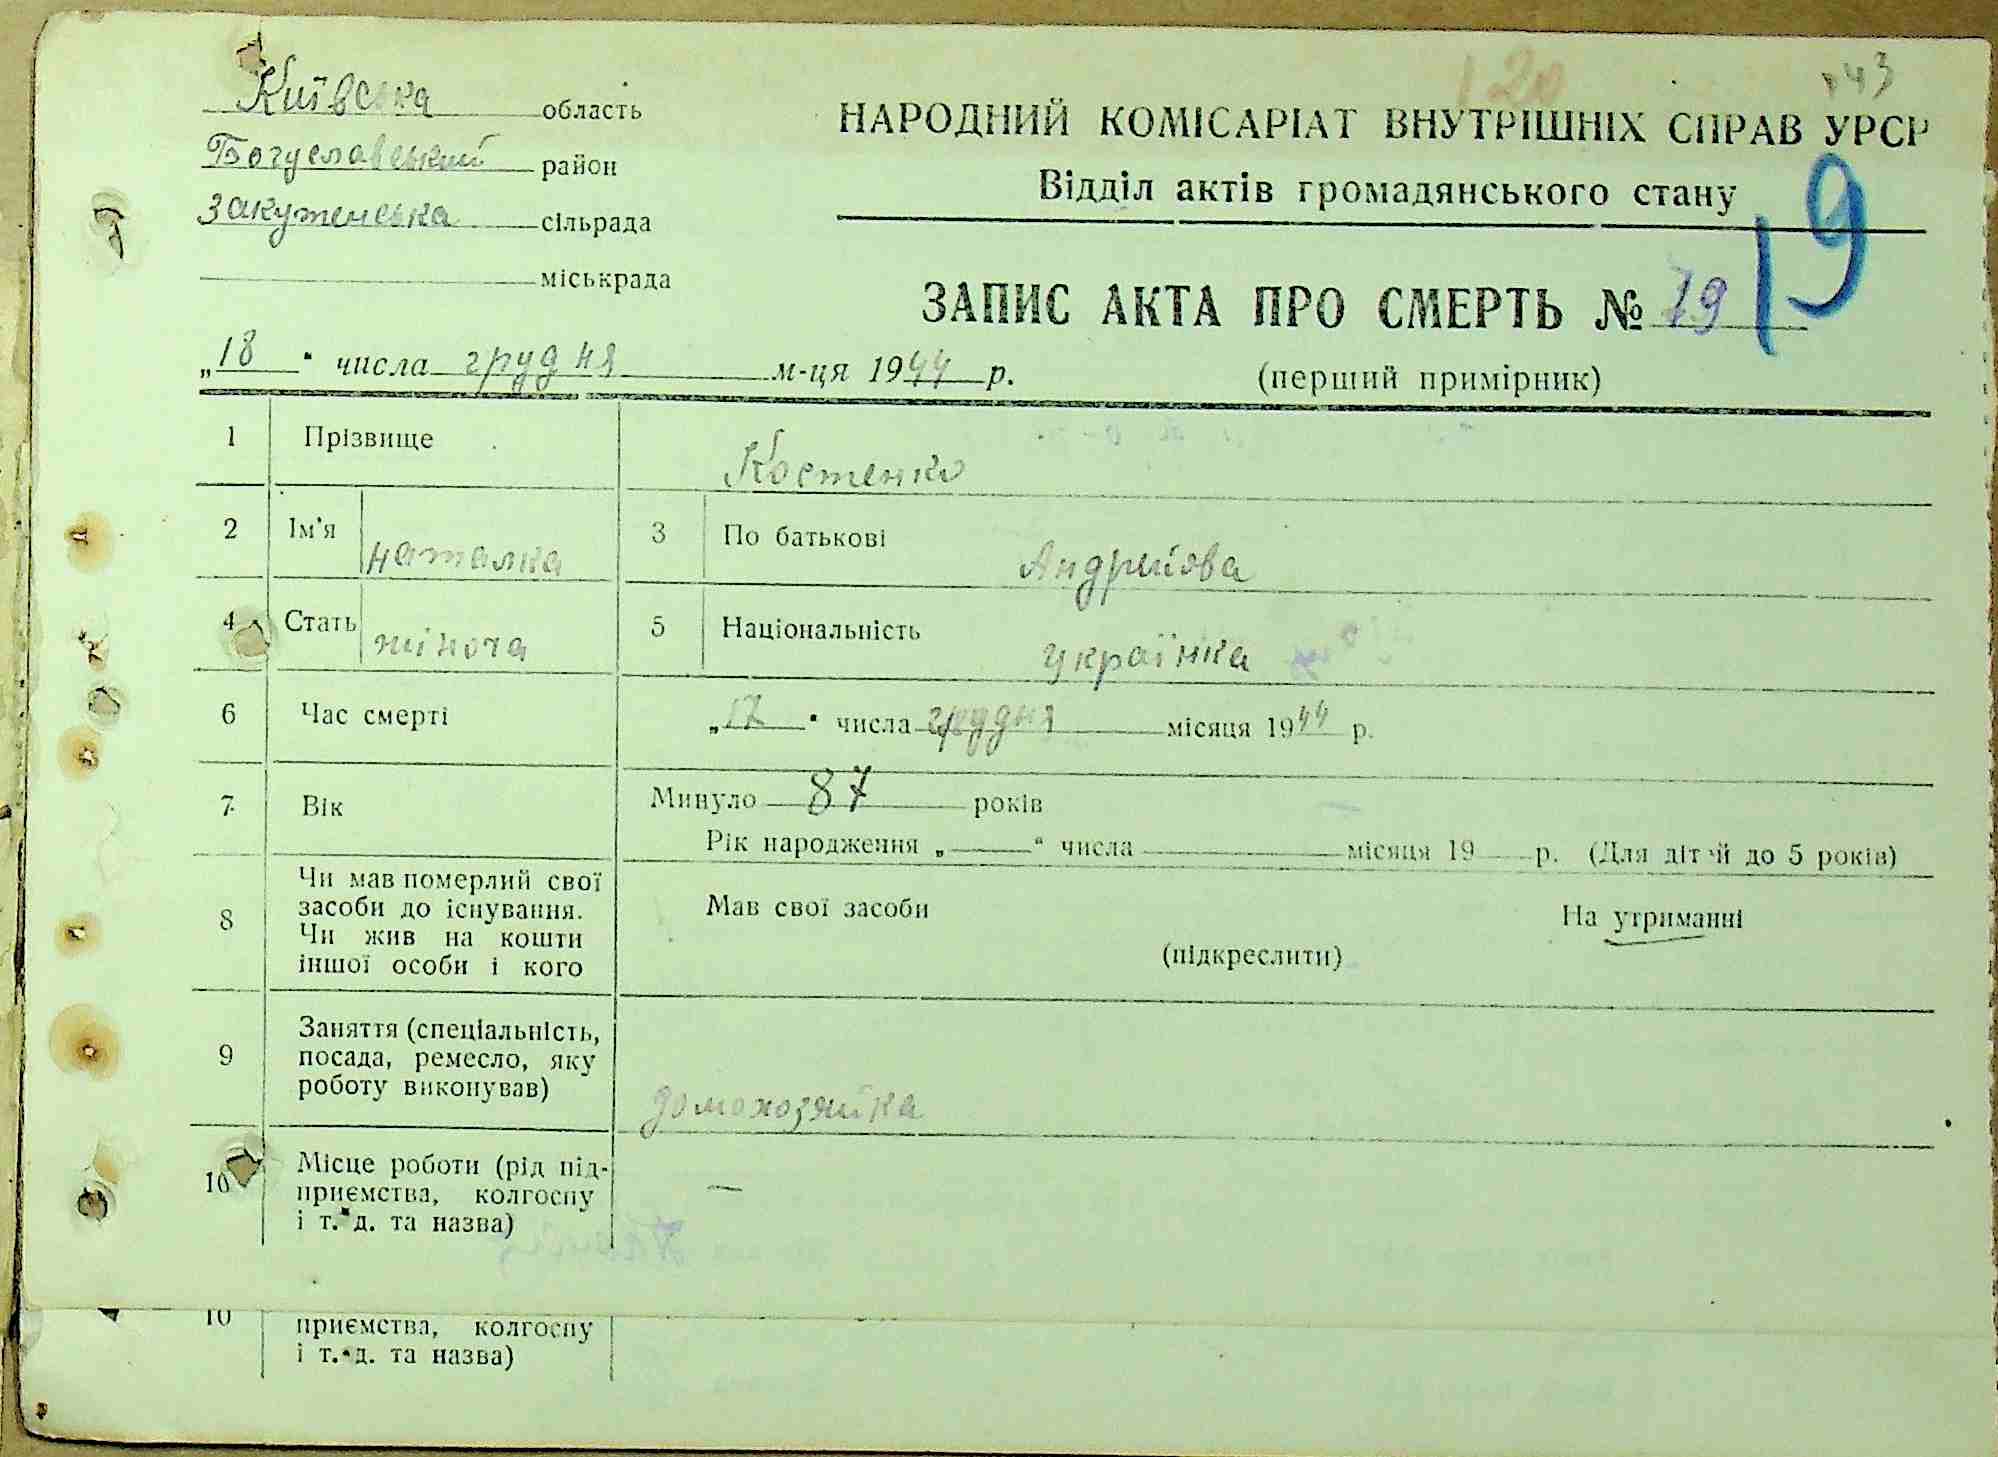 120
43
Київська область
НАРОДНИЙ КОМІСАРІАТ ВНУТРІШНІХ СПРАВ УРСР
Богуславський район
Відділ актів громадянського стану
Закутенська сільрада
міськрада
ЗАПИС АКТА ПРО СМЕРТЬ № 19 19
„18" числа грудня м-ця 1944 р.
(перший примірник)
1 Прізвище Костенко
2 Ім'я наталка 3 По батькові Андрийова
4 Стать жіноча 5 Національність українка
6 Час смерті „17" числа грудня місяця 1944 р.
7 Вік Минуло 87 років
Рік народження „ " числа місяця 19 р. (Для дітей до 5 років)
8 Чи мав померлий свої
засоби до існування.
Чи жив на кошти
іншої особи і кого
Мав свої засоби На утриманні
(підкреслити)
9 Заняття (спеціальність,
посада, ремесло, яку
роботу виконував)
домохозяйка
10 Місце роботи (рід під-
приємства, колгоспу
і т. д. та назва)
—
10 приємства, колгоспу
і т. д. та назва)